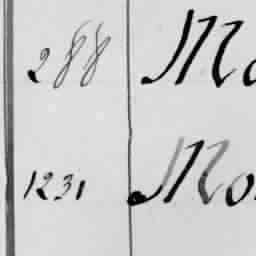 288 Ma
1231 Mo